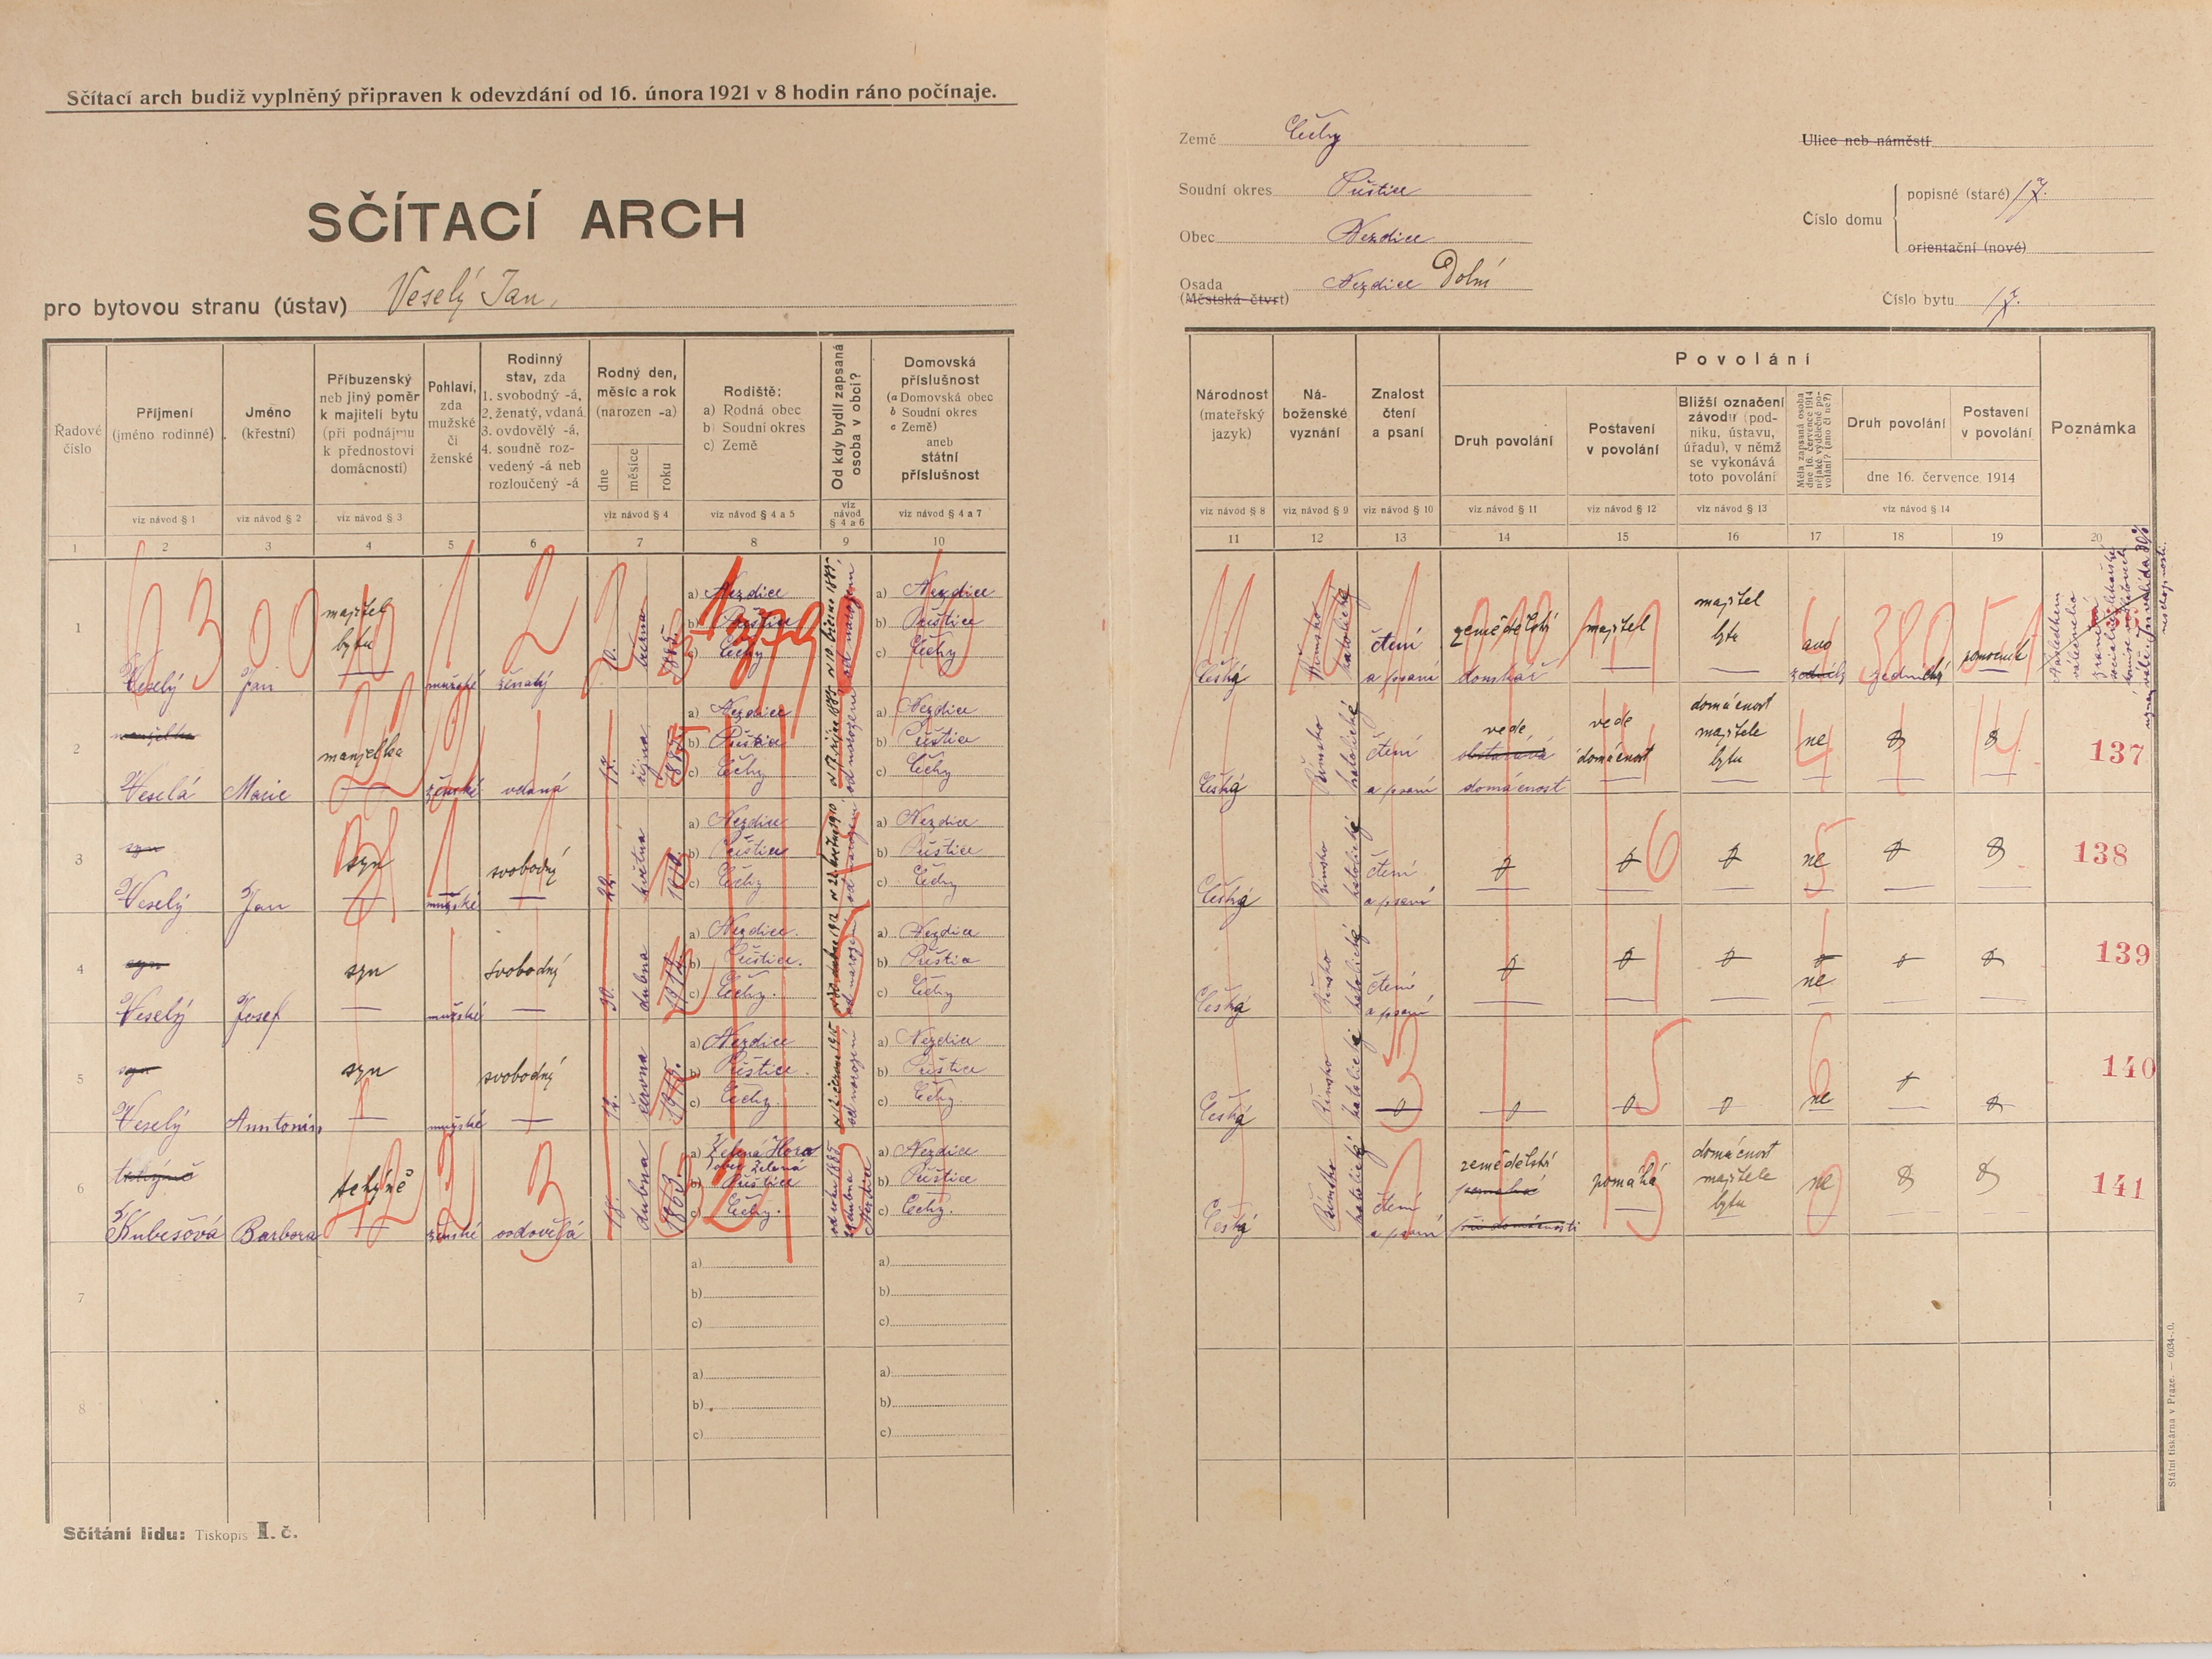 Sčítací arch budiž vyplněný připraven k odevzdání od 16. února 1921 v 8 hodin ráno počínaje.
SČÍTACÍ ARCH
pro bytovou stranu (ústav) Veselý Jan.
Země Čechy
Soudní okres Přeštice
Obec Nezdice
Osada Nezdice Dolní
(Městská čtvrt)
Ulice neb náměstí
Číslo domu
popisné (staré) 17.
orientační (nové)
Číslo bytu 17.
Řadové číslo
Příjmení
(jméno rodinné)
Jméno
(křestní)
Příbuzenský
neb jiný poměr
k majiteli bytu
(při podnájmu
k přednostovi
domácnosti)
Pohlaví,
zda
mužské
či
ženské
Rodinný
stav, zda
1. svobodný -á,
2. ženatý, vdaná,
3. ovdovělý -á,
4. soudně roz-
vedený -á neb
rozloučený -á
Rodný den,
měsíc a rok
(narozen -a)
dne
měsíce
roku
Rodiště:
a) Rodná obec
b) Soudní okres
c) Země
Od kdy bydlí zapsaná
osoba v obci?
Domovská
příslušnost
(a Domovská obec
b Soudní okres
c Země)
aneb
státní
příslušnost
viz návod § 1
viz návod § 2
viz návod § 3
viz návod § 4
viz návod § 4 a 5
viz návod § 4 a 6
viz návod § 4 a 7
1 2 3 4 5 6 7 8 9 10
Národnost
(mateřský
jazyk)
Ná-
boženské
vyznání
Znalost
čtení
a psaní
Povolání
Druh povolání
Postavení
v povolání
Bližší označení
závodu (pod-
niku, ústavu,
úřadu), v němž
se vykonává
toto povolání
Měla zapsaná osoba
dne 16. července 1914
nějaké výdělečné po-
volání? (ano či ne?)
Druh povolání
Postavení
v povolání
dne 16. července 1914
Poznámka
viz návod § 8
viz návod § 9
viz návod § 10
viz návod § 11
viz návod § 12
viz návod § 13
viz návod § 14
11 12 13 14 15 16 17 18 19 20
1
Veselý
Jan
majitel
bytu
mužské
ženatý
10.
března
1885
a) Nezdice
b) Přeštice
c) Čechy
od narození
a) Nezdice
b) Přeštice
c) Čechy
Česká
Římsko
katolické
čtení
a psaní
zemědělství
domkář
majitel
majitel
bytu
ano
zednický
pomocník
2
manželka
Veselá
Marie
manželka
ženské
vdaná
17.
října
a) Nezdice
b) Přeštice
c) Čechy
od narození
a) Nezdice
b) Přeštice
c) Čechy
Česká
Římsko
katolické
čtení
a psaní
vede
domácnost
vede
domácnost
domácnost
majitele
bytu
ne
137
3
syn
Veselý
Jan
syn
mužské
svobodný
22.
května
1910.
a) Nezdice
b) Přeštice
c) Čechy
od narození
a) Nezdice
b) Přeštice
c) Čechy
Česká
Římsko
katolické
čtení
a psaní
ne
138
4
syn
Veselý
Josef
syn
mužské
svobodný
30.
dubna
1912.
a) Nezdice.
b) Přeštice.
c) Čechy.
od narození
a) Nezdice
b) Přeštice
c) Čechy
Česká
Římsko
katolické
čtení
a psaní
ne
139
5
syn
Veselý
Anntonín
syn
mužské
svobodný
12.
června
1915.
a) Nezdice
b) Přeštice.
c) Čechy.
od narození
a) Nezdice
b) Přeštice
c) Čechy
Česká
Římsko
katolické
ne
140
6
tchýně
Kubešová
Barbora
tchýně
ženské
ovdovělá
18.
dubna
a) Zelená Hora
obec Zelená
b) Přeštice
c) Čechy.
a) Nezdice
b) Přeštice
c) Čechy.
Česká
Římsko
katolické
čtení
a psaní
zemědělství
při domácnosti
pomáhá
domácnost
majitele
bytu
ne
141
7
a)
b)
c)
a)
b)
c)
8
a)
b)
c)
a)
b)
c)
Sčítání lidu: Tiskopis I. č.
Státní tiskárna v Praze. — 6034-20.